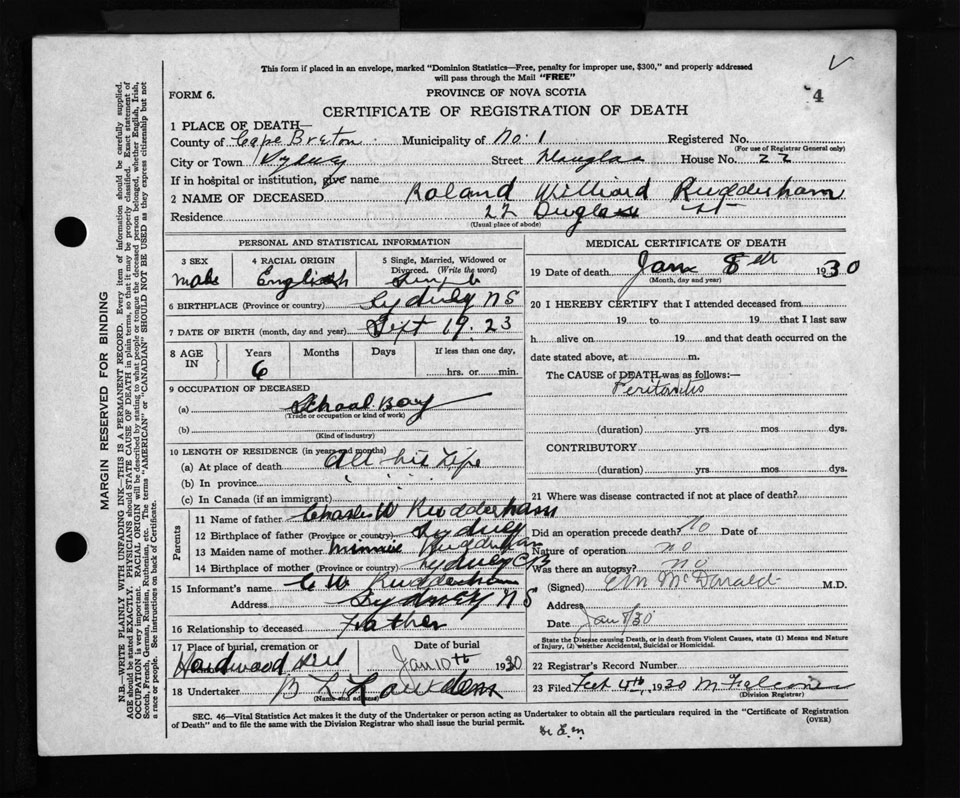 This form if placed in an envelope, marked "Dominion Statistics—Free, penalty for improper use, $300," and properly addressed
will pass through the Mail "FREE"
FORM 6.
PROVINCE OF NOVA SCOTIA
4
CERTIFICATE OF REGISTRATION OF DEATH
1 PLACE OF DEATH—
County of Cape Breton Municipality of No. 1 Registered No.
(For use of Registrar General only)
City or Town Sydney Street Douglas House No. 22
If in hospital or institution, give name
2 NAME OF DECEASED Roland Williard Rudderham
Residence 22 Duglass St
(Usual place of abode)
PERSONAL AND STATISTICAL INFORMATION
3 SEX
male
4 RACIAL ORIGIN
English
5 Single, Married, Widowed or
Divorced. (Write the word)
6 BIRTHPLACE (Province or country) Sydney NS
7 DATE OF BIRTH (month, day and year) Sept 19. 23
8 AGE IN
Years Months Days If less than one day,
6 hrs. or min.
9 OCCUPATION OF DECEASED
(a) School Boy
(Trade or occupation or kind of work)
(b)
(Kind of industry)
10 LENGTH OF RESIDENCE (in years and months)
(a) At place of death All his life
(b) In province
(c) In Canada (if an immigrant)
Parents
11 Name of father Charles W Rudderham
12 Birthplace of father (Province or country) Sydney
13 Maiden name of mother Minnie Rudderham
14 Birthplace of mother (Province or country) Sydney CB
15 Informant's name C W Rudderham
Address Sydney NS
16 Relationship to deceased Father
17 Place of burial, cremation or
Hardwood Hill
Date of burial
Jan 10th 1930
18 Undertaker
(Name and address)
MEDICAL CERTIFICATE OF DEATH
19 Date of death Jan 8th 1930
(Month, day and year)
20 I HEREBY CERTIFY that I attended deceased from
19 to 19 that I last saw
h alive on 19 and that death occurred on the
date stated above, at m.
The CAUSE of DEATH was as follows:—
Peritonitis
(duration) yrs mos dys.
CONTRIBUTORY
(duration) yrs mos dys.
21 Where was disease contracted if not at place of death?
Did an operation precede death? No Date of
Nature of operation no
Was there an autopsy? no
(Signed) McDonald M.D.
Address
Date Jan 8/30
State the Disease causing Death, or in death from Violent Causes, state (1) Means and Nature
of Injury, (2) whether Accidental, Suicidal or Homicidal.
22 Registrar's Record Number
23 Filed 1930
(Division Registrar)
SEC. 46—Vital Statistics Act makes it the duty of the Undertaker or person acting as Undertaker to obtain all the particulars required in the "Certificate of Registration
of Death" and to file the same with the Division Registrar who shall issue the burial permit.
(OVER)
MARGIN RESERVED FOR BINDING
N.B.—WRITE PLAINLY WITH UNFADING INK—THIS IS A PERMANENT RECORD. Every item of information should be carefully supplied.
AGE should be stated EXACTLY. PHYSICIANS should STATE CAUSE OF DEATH in plain terms, so that it may be properly classified. Exact statement of
OCCUPATION is very important. RACIAL ORIGIN will be described by stating to what people or tongue the deceased person belonged, whether English, Irish,
Scotch, French, German, Russian, Ruthenian, etc. The terms "AMERICAN" or "CANADIAN" SHOULD NOT BE USED as they express citizenship but not
a race or people. See instructions on back of Certificate.